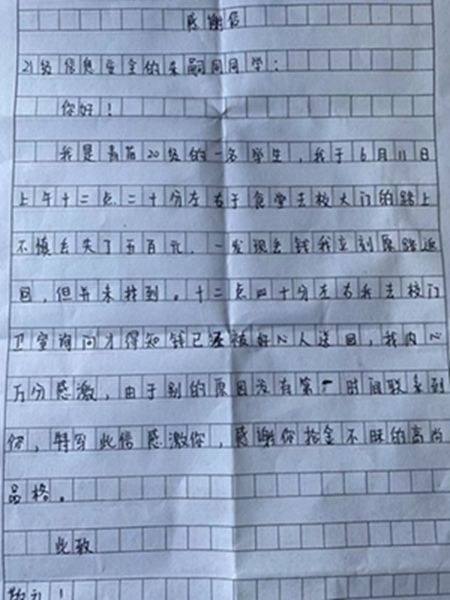 感谢信
21级信息安全的朱嗣同同学：
你好！
我是青苗20级的一名学生，我于6月11日
上午十二点二十分左右于食堂去校大门的路上
不慎丢失了五百元，一发现丢钱我立刻原路返
回，但并未找到。十二点四十分左右我去校门
卫室询问才得知钱已经被好心人送回，我内心
万分感激，由于别的原因没有第一时间联系到
你，特写此信感激你，感谢你拾金不昧的高尚
品格。
此致
敬礼！